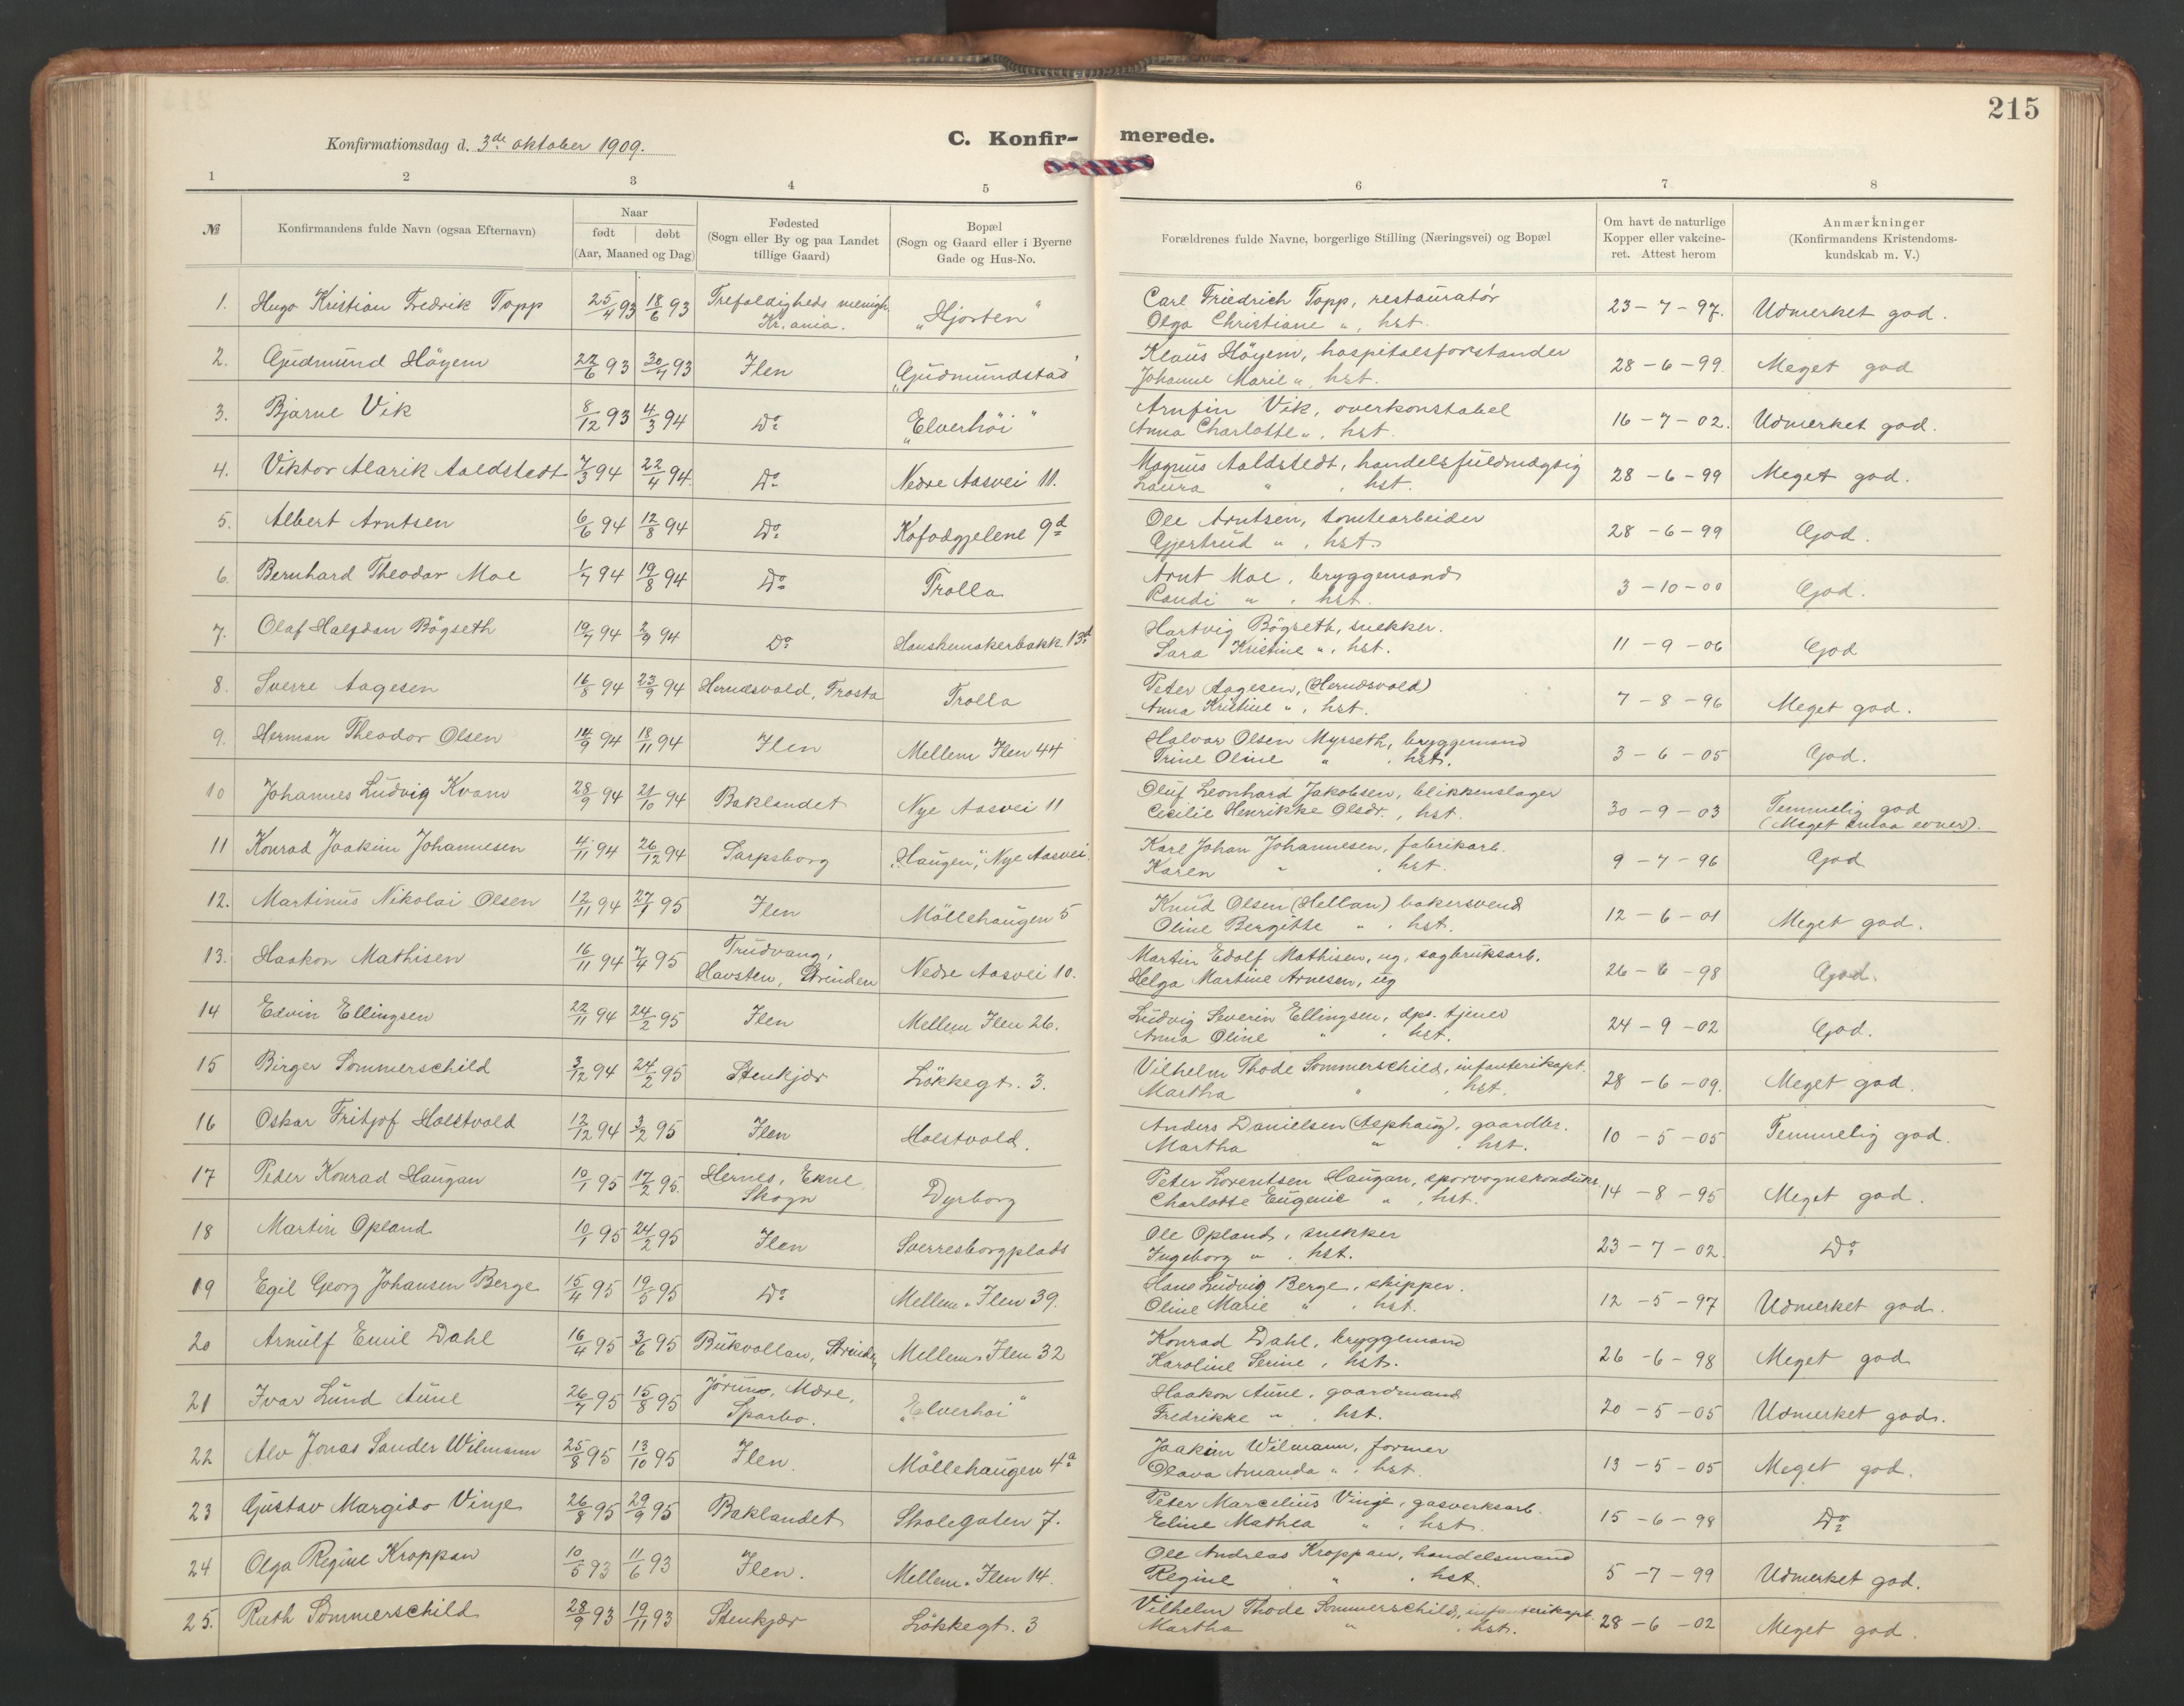 215
Konfirmationsdag d. 3de oktober 1909.
C. Konfir- merede.
1 2 3 4 5 6 7 8
№ Konfirmandens fulde Navn (ogsaa Efternavn) Naar født døbt (Aar, Maaned og Dag) Fødested (Sogn eller By og paa Landet tillige Gaard) Bopæl (Sogn og Gaard eller i Byerne Gade og Hus-No. Forældrenes fulde Navne, borgerlige Stilling (Næringsvei) og Bopæl Om havt de naturlige Kopper eller vakcineret. Attest herom Anmærkninger (Konfirmandens Kristendomskundskab m. V.)
1. Hugo Kristian Fredrik Topp 25/4 93 18/6 93 Trefoldigheds menigh. Kr.ania. „Hjorten" Carl Friedrich Topp, restauratör
Olga Christiane „, hst. 23-7-97. Udmerket god.
2. Gudmund Höyem 22/6 93 30/7 93 Ilen „Gudmundstad Klaus Höyem, hospitalsforstander
Johanne Marie „, hst. 28-6-99. Meget god
3. Bjarne Vik 8/12 93 4/3 94 Do „Elverhöi" Arnfin Vik, overkonstabel
Anna Charlotte „, hst. 16-7-02. Udmerket god.
4. Viktor Alarik Aaldstedt 7/3 94 22/4 94. Do Nedre Aasvei 11. Magnus Aaldstedt, handelsfuldmægtig
Laura „, hst. 28-6-99 Meget god.
5. Albert Arntsen 6/6 94 12/8 94 Do Kofodgjelene 9d Ole Arntsen, tomtearbeider
Gjertrud „, hst. 28-6-99 God.
6. Bernhard Theodor Moe 1/7 94 19/8 94 Do Trolla Arnt Moe, bryggemand
Randi „, hst. 3-10-00 God.
7. Olaf Halfdan Bögseth 19/7 94 2/9 94 Do Hanskemakerbakk. 13d Hartvig Bögseth, snekker.
Sara Kristine „, hst. 11-9-06 God
8. Sverre Aagesen 16/8 94 23/9 94 Hernesvold, Frosta Trolla Peter Aagesen, (Hernesvold)
Anna Kristine „, hst. 7-8-96 Meget god.
9. Herman Theodor Olsen 14/9 94 18/11 94 Ilen Mellem Ilen 44 Halvor Olsen Myrseth, bryggemand
Trine Oline „, hst. 3-6-05 God.
10 Johannes Ludvig Kvam 28/9 94 21/10 94 Baklandet Nye Aasvei 11 Oluf Leonhard Jakobsen, blikkenslager
Cecilie Henrikke Olsdr., hst. 30-9-03 Temmelig god
(Meget smaa evner).
11 Konrad Joakim Johannesen 4/11 94 26/12 94 Sarpsborg „Haugen", Nye Aasvei. Karl Johan Johannesen, fabrikarb.
Karen „, hst. 9-7-96 God
12. Martinus Nikolai Olsen 12/11 94 27/1 95 Ilen Möllehaugen 5 Knud Olsen (Hellan) bakersvend
Oline Bergitte „, hst. 12-6-01 Meget god.
13. Haakon Mathisen 16/11 94 7/4 95 Trudvang, Havsten, Strinden Nedre Aasvei 10. Martin Edolf Mathisen, ug, sagbruksarb.
Helga Martine Arnesen, ug 26-6-98 God.
14 Edvin Ellingsen 22/11 94 24/2 95 Ilen Mellem Ilen 26. Ludvig Severin Ellingsen, dps. tjener
Anna Oline „, hst. 24-9-02 God.
15 Birger Sommerschild 3/12 94 24/2 95 Stenkjær Lökkegt. 3. Vilhelm Thode Sommerschild, infanterikapt.
Martha „, hst. 28-6-09. Meget god.
16 Oskar Fritjof Holstvold 12/12 94 3/2 95 Ilen Holstvold. Anders Danielsen (Asphaug), gaardbr.
Martha „, hst. 10-5-05 Temmelig god.
17 Peder Konrad Haugan 10/1 95 17/2 95. Hernes, Ekne, Skogn Dyrborg Peter Lorentsen Haugan, sporvognskonduktr
Charlotte Eugenie „, hst. 14-8-95 Meget god.
18 Martin Opland 10/1 95 24/2 95 Ilen Sverresborgplads Ole Opland, snekker
Ingeborg „, hst. 23-7-02. Do
19 Egil Georg Johansen Berge 15/4 95 19/5 95 Do Mellem Ilen 39. Hans Ludvig Berge, skipper.
Oline Marie „, hst. 12-5-97 Udmerket god.
20 Arnulf Emil Dahl 16/4 95 3/6 95 Bukvollan, Strinden Mellem Ilen 32 Konrad Dahl, bryggemand
Karoline Serine, hst. 26-6-98 Meget god
21 Ivar Lund Aune 26/7 95 15/8 95 Jörum, Mære, Sparbo. „Elverhöi" Haakon Aune, gaardmand
Fredrikke „, hst. 20-5-05 Udmerket god.
22 Alv Jonas Sander Wilmann 25/8 95 13/10 95 Ilen. Möllehaugen 4a Joakim Wilmann, former
Olava Amanda „, hst. 13-5-05 Meget god.
23 Gustav Margido Vinje 26/8 95 29/9 95 Baklandet Skolegaten 7. Peter Marcelius Vinje, gasverksarb.
Eline Mathea „, hst. 15-6-98 Do
24 Olga Regine Kroppan 10/5 93 11/6 93 Ilen. Mellem Ilen 14. Ole Andreas Kroppan, handelsmand
Regine „, hst. 5-7-99 Udmerket god.
25. Ruth Sommerschild 28/9 93 19/11 93 Stenkjær Lökkegt. 3 Vilhelm Thode Sommerschild, infanterikapt.
Martha „, hst. 28-6-02 Meget god.